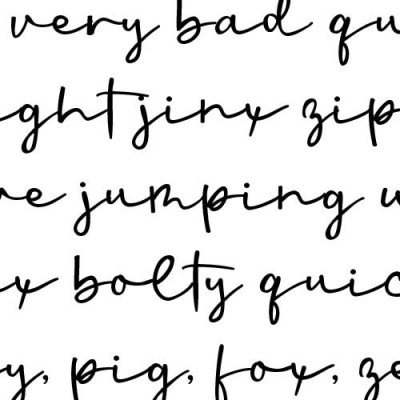 very bad qu
ght jinx zip
ve jumping w
x bolty quic
y, pig, fox, ze